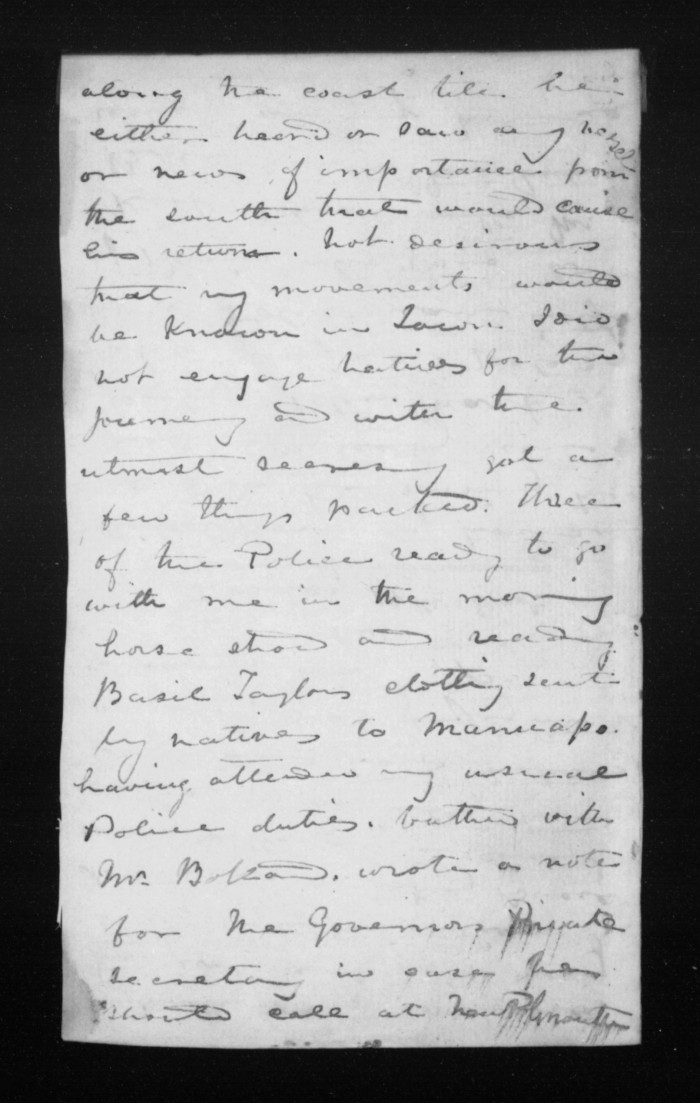 along the coast till he
either heard or saw any vessel
or news of importance from
the south that would cause
his return. Not desirous
that my movements would
be Known in Town. I did
not engage natives for the
Journey and with the
utmost secresy got a
few things packed. Three
of the Police ready to go
with me in the morning
horse shod and ready
Basil Taylors clothing sent
by natives to
having attended my usual
Police duties. with
Mr. wrote a note
for the Governors Private
secretary in case he
should call at New Plymouth